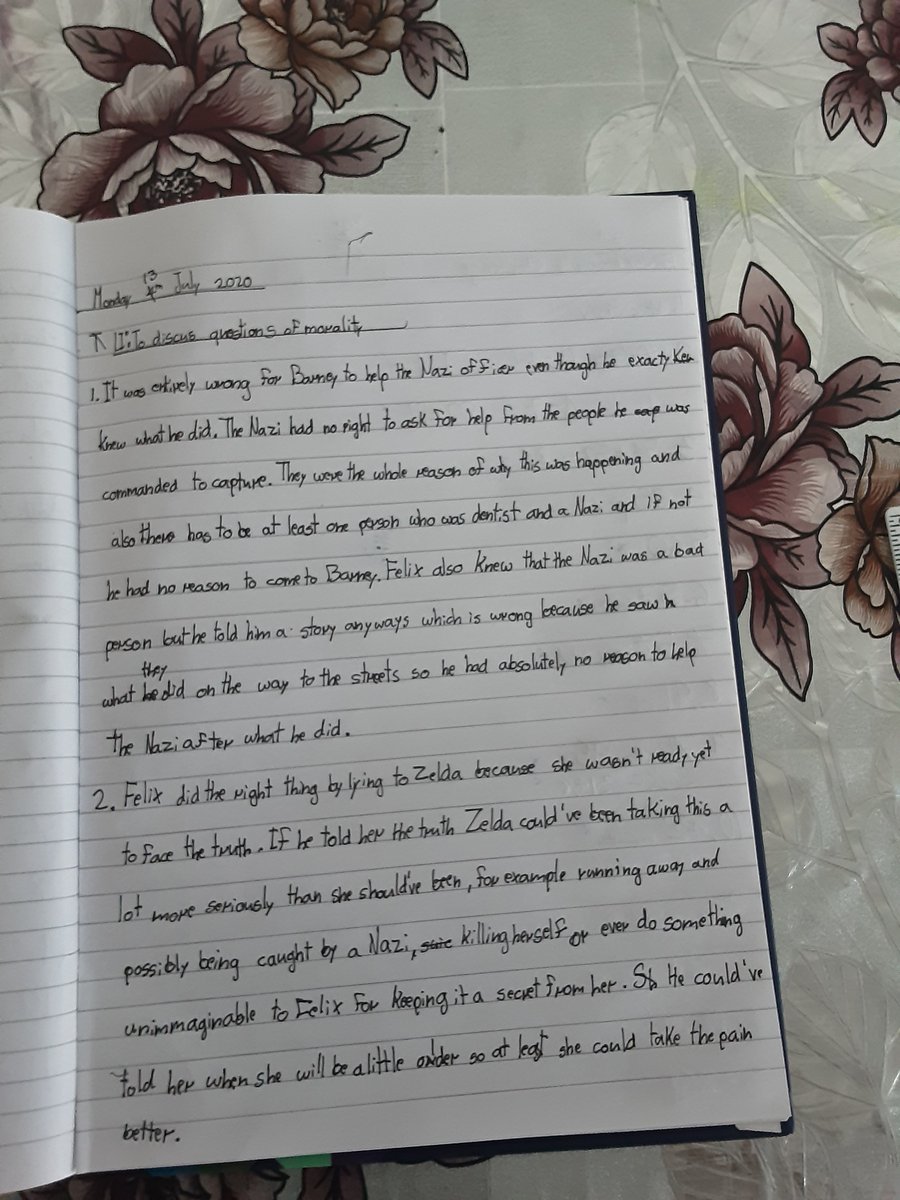 Monday 13th July 2020
LI: To discus questions of morality
1. It was entirely wrong for Barney to help the Nazi officer even though he exacty Ken
knew what he did. The Nazi had no right to ask for help from the people he cap was
commanded to capture. They were the whole reason of why this was happening and
also there has to be at least one person who was dentist and a Nazi and if not
he had no reason to come to Barney. Felix also knew that the Nazi was a bad
person but he told him a story anyways which is wrong because he saw h
they
what he did on the way to the streets so he had absolutely no reason to help
the Nazi after what he did.
2. Felix did the right thing by lying to Zelda because she wasn't ready yet
to face the truth. If he told her the truth Zelda could've been taking this a
lot more seriously than she should've been, for example running away and
possibly being caught by a Nazi, killing herself or ever do something
unimmaginable to Felix for keeping it a secret from her. He could've
told her when she will be a little older so at least she could take the pain
better.